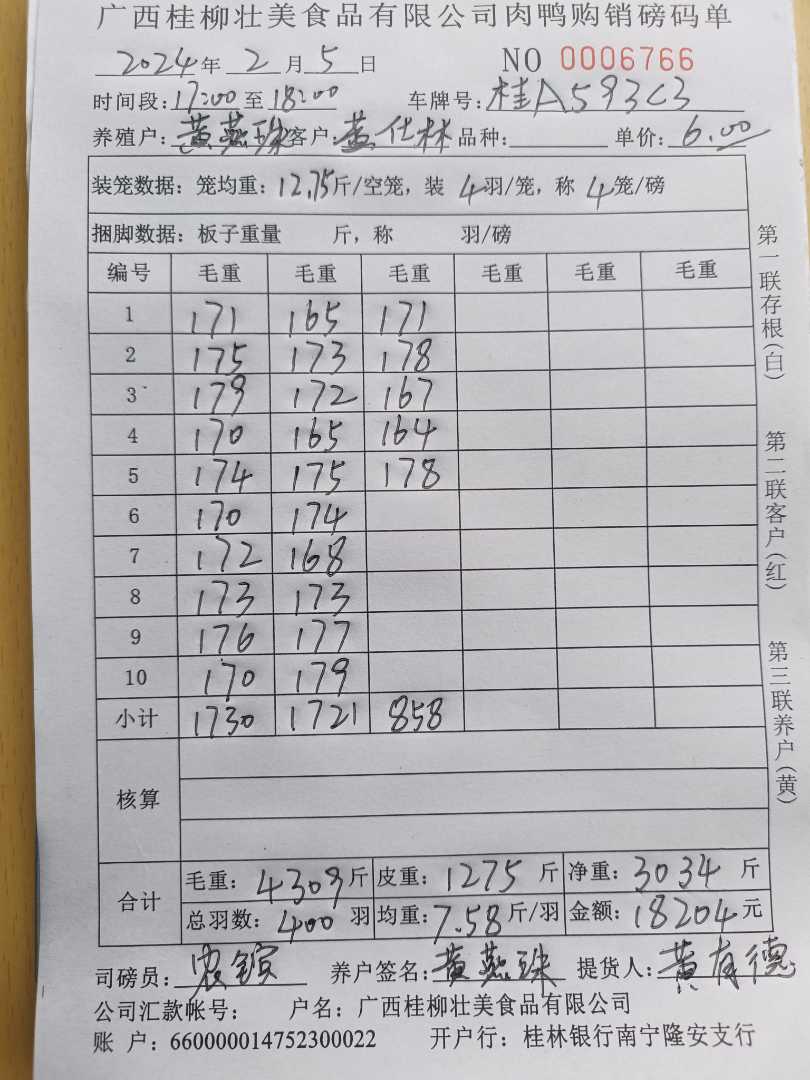 广西桂柳壮美食品有限公司肉鸭购销磅码单
2024年 2月 5日 NO 0006766
时间段: 17:00 至 18:00 车牌号: 桂A593C3
养殖户: 黄燕珠 客户: 黄仕林 品种: 单价: 6.00
装笼数据: 笼均重: 12.75斤/空笼, 装 4羽/笼, 称 4笼/磅
捆脚数据: 板子重量 斤, 称 羽/磅
编号 毛重 毛重 毛重 毛重 毛重 毛重
1 171 165 171
2 175 173 178
3 179 172 167
4 170 165 164
5 174 175 178
6 170 174
7 172 168
8 173 173
9 176 177
10 170 179
小计 1730 1721 858
核算
合计 毛重: 4309斤 皮重: 1275斤 净重: 3034斤
总羽数: 400羽 均重: 7.58斤/羽 金额: 18204元
司磅员: 养户签名: 黄燕珠 提货人: 黄有德
公司汇款帐号: 户名: 广西桂柳壮美食品有限公司
账 户: 660000014752300022 开户行: 桂林银行南宁隆安支行
第一联存根(白)
第二联客户(红)
第三联养户(黄)